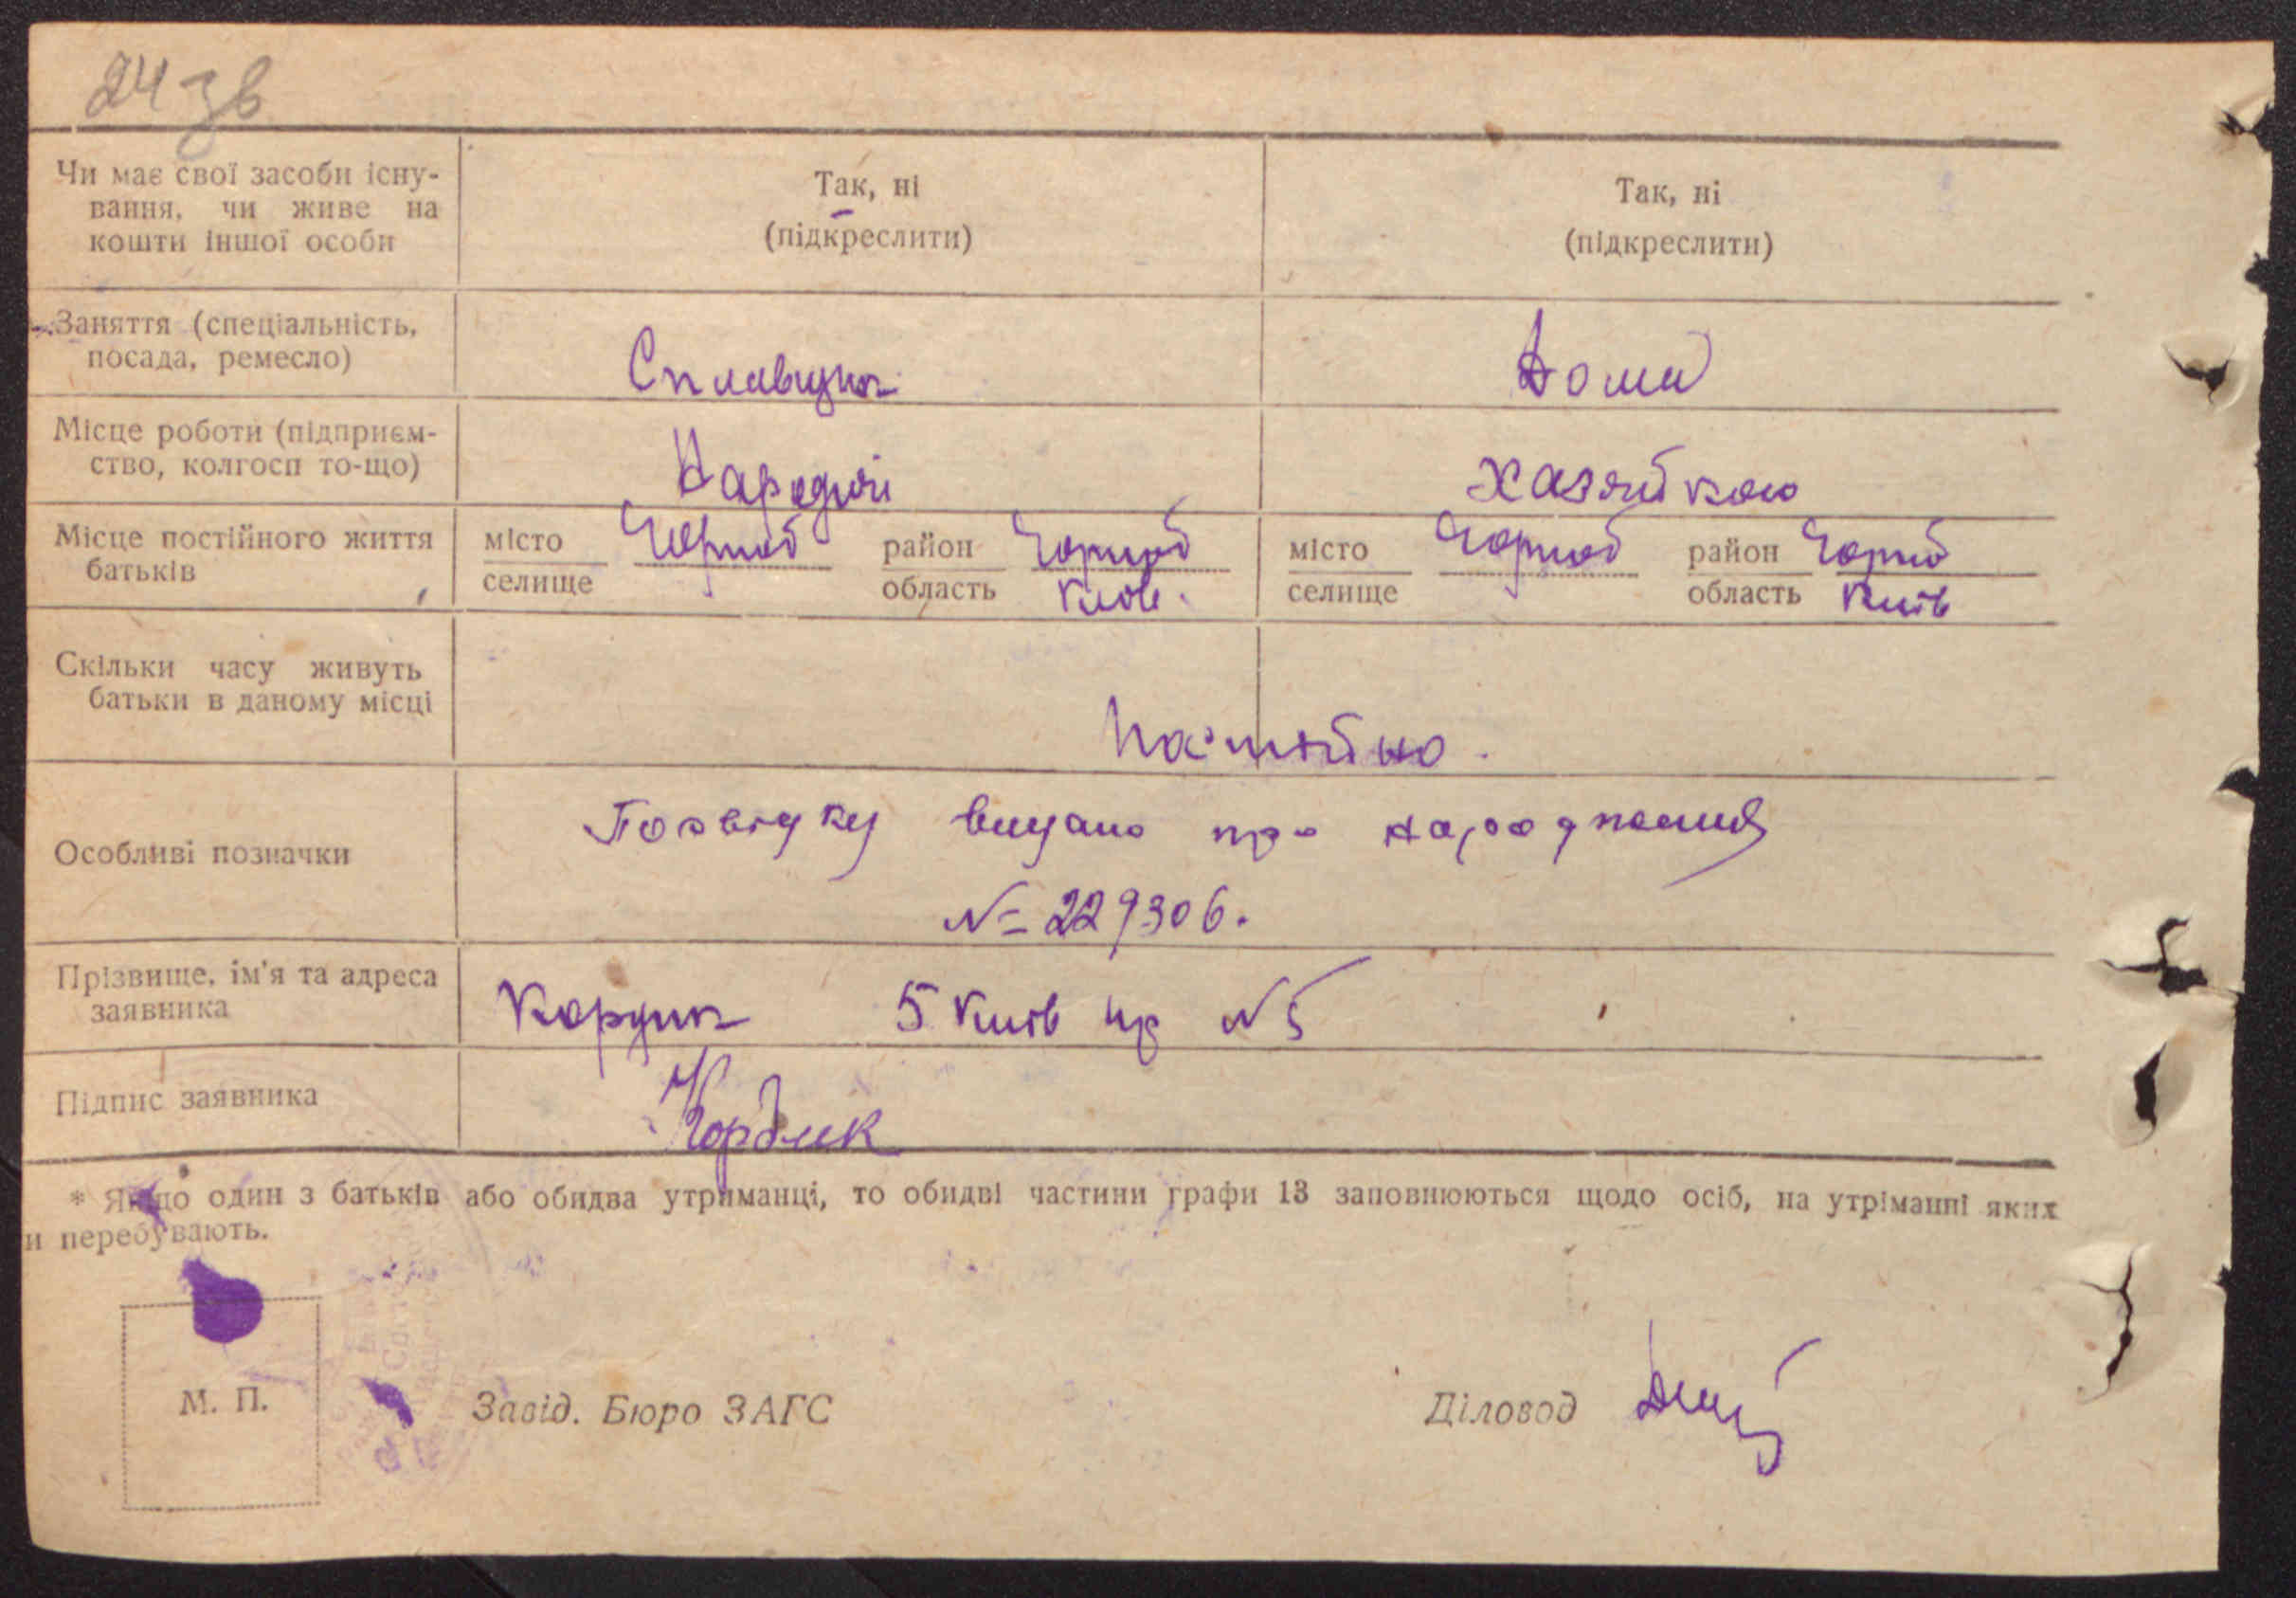 24 зв
Чи має свої засоби існу-
вання, чи живе на
кошти іншої особи
Так, ні
(підкреслити)
Так, ні
(підкреслити)
Заняття (спеціальність,
посада, ремесло)
Сплавщик
Дома
Місце роботи (підприєм-
ство, колгосп то-що)
Народичі
хазяйкою
Місце постійного життя
батьків
місто
селище
Чорноб
район
область
Чорноб
Київ.
місто
селище
Чорноб
район
область
Чорноб
Київ
Скільки часу живуть
батьки в даному місці
Постійно.
Особливі позначки
Посвідку видано про народження
№ 229306.
Прізвище, ім'я та адреса
заявника
Кордик 5 Київ №5
Підпис заявника
Кордик
* Якщо один з батьків або обидва утриманці, то обидві частини графи 13 заповнюються щодо осіб, на утріманні яких
и перебувають.
М. П.
Завід. Бюро ЗАГС
Діловод